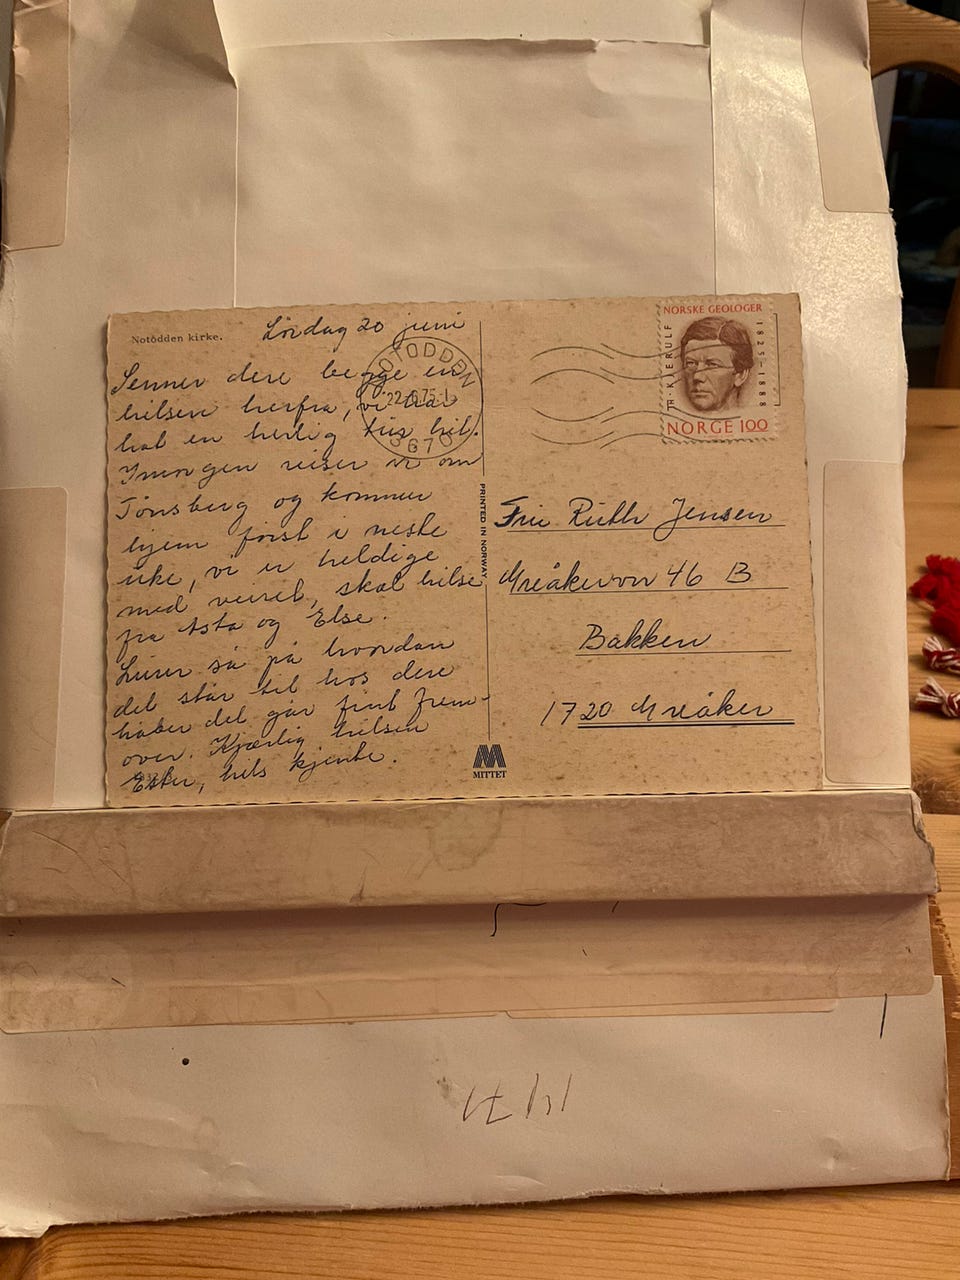 Notodden kirke.
Lördag 20 juni
Senner dere begge en
hilsen herfra, vi har
hat en herlig tur hit.
Imorgen reiser vi om
Tönsberg og kommer
hjem först i neste
uke, vi er heldige
med veiret, skal hilse
fra Asta og Else.
Lurer så på hvordan
det står til hos dere
håber det går fint frem-
over. Kjærlig hilsen
Ester, hils kjente.
NOTODDEN
22.-6.75-1
3670
PRINTED IN NORWAY
MITTET
NORSKE GEOLOGER
TH. KJERULF
1825-1888
NORGE 100
Fru Ruth Jensen
46 B
Bakken
1720